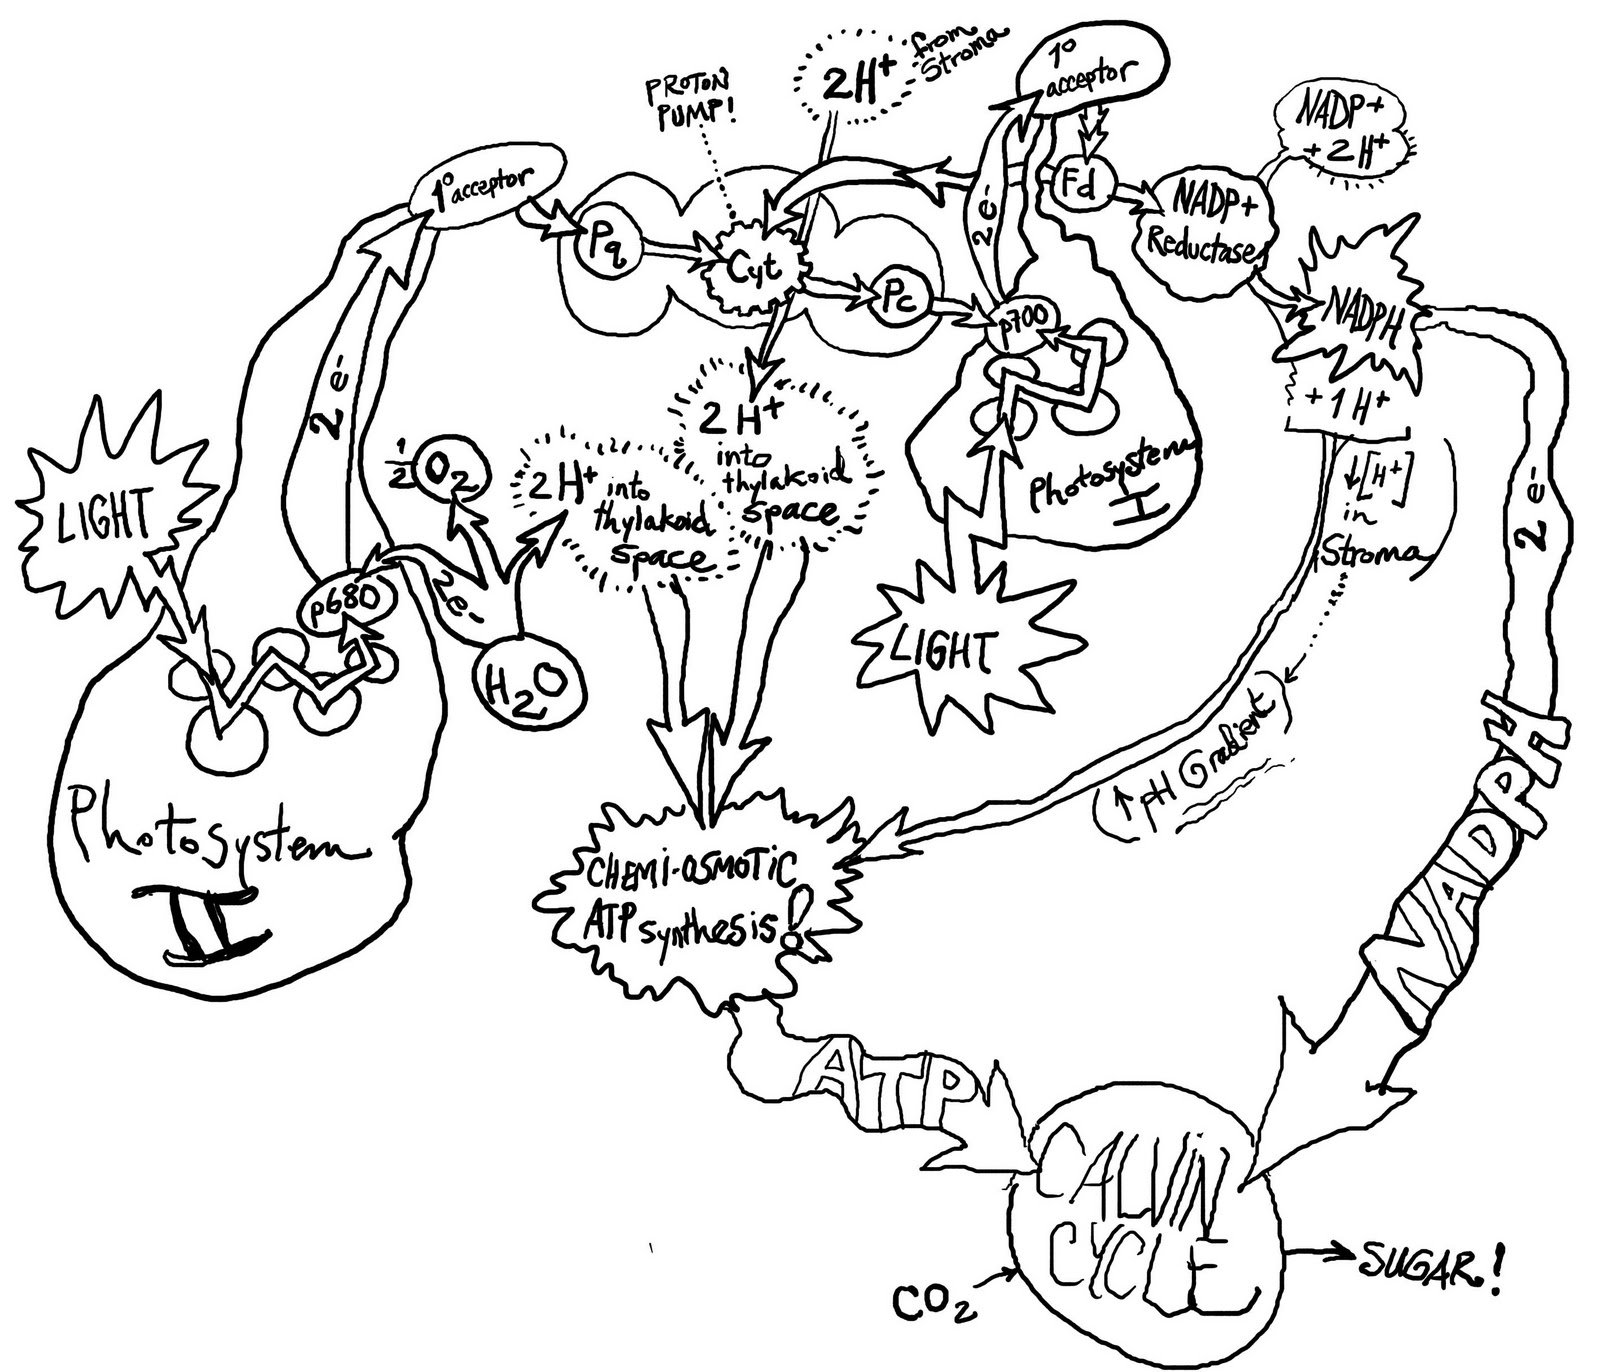 PROTON
PUMP!
2H+
from
Stroma
1º
acceptor
NADP+
+ 2H+
1º acceptor
Pq
Cyt
Pc
Fd
NADP+
Reductase
NADPH
+ 1H+
2e-
p700
2e-
LIGHT
1/2 O2
2H+ into
thylakoid
space
2H+
into
thylakoid
space
Photosystem
I
↓[H+]
in
Stroma
2e-
p680
2e-
H2O
LIGHT
(↑pH Gradient)
Photosystem
II
CHEMI-OSMOTIC
ATP synthesis!
NADPH
ATP
CALVIN
CYCLE
CO2
SUGAR!